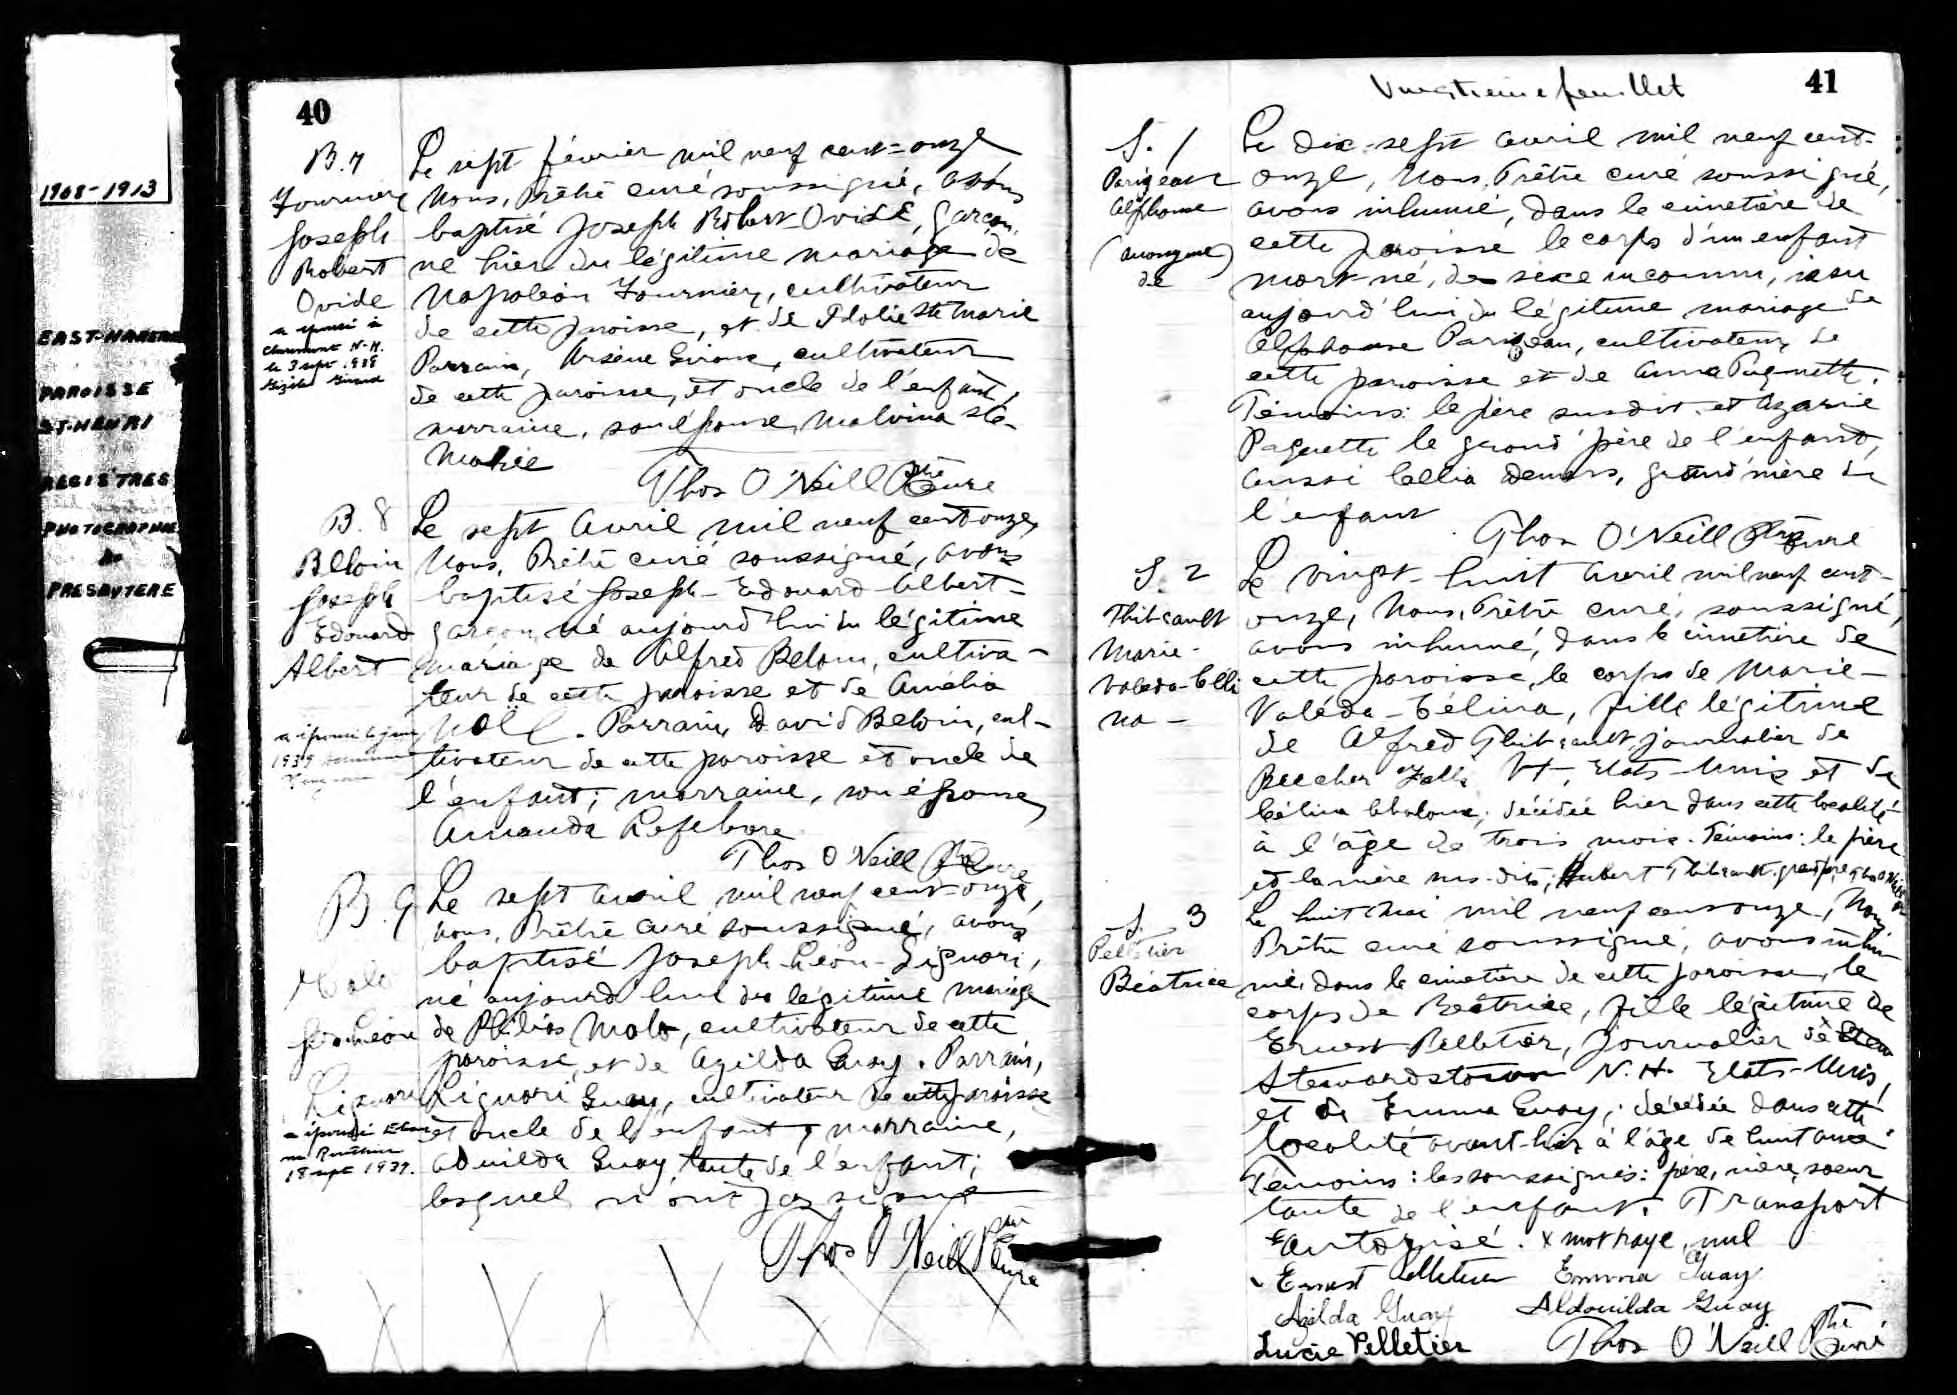 1908-1913
EAST-HEREFORD
PAROISSE
ST-HENRI
REGISTRES
PHOTOGRAPHIE
AU
PRESBYTERE
40
B. 7
Fournier
Joseph
Robert
Ovide
a épousé à
Claremont N-H.
le 3 sept. 1938
Le sept février mil neuf cent-onze
Nous, Prêtre curé soussigné, avons
baptisé Joseph Robert-Ovide, garçon,
né hier du légitime mariage de
Napoléon Fournier, cultivateur
de cette paroisse, et de Ste Marie
Parrain, Arsène Giroux, cultivateur
de cette paroisse, et oncle de l'enfant,
marraine, son épouse, Malvina Ste-
Marie
Thos O'Neill Ptre Curé
B. 8
Beloin
Joseph
Edouard
Albert
a épousé le
1939
Le sept Avril mil neuf cent onze,
Nous, Prêtre curé soussigné, avons
baptisé Joseph-Edouard-Albert-
garçon, né aujourd'hui du légitime
mariage de Alfred Beloin, cultiva-
teur de cette paroisse et de Amélia
Noël. Parrain, David Beloin, cul-
tivateur de cette paroisse et oncle de
l'enfant; marraine, son épouse,
Amanda Lefebvre
Thos O'Neill Ptre Curé
B. 9
Malo
Jos. Léon
Liguori
a épousé
18 sept 1937.
Le sept avril mil neuf cent-onze,
Nous, Prêtre curé soussigné, avons
baptisé Joseph-Léon-Liguori,
né aujourd'hui du légitime mariage
de Philias Malo, cultivateur de cette
paroisse, et de Azilda Guay. Parrain,
Liguori Guay, cultivateur de cette paroisse
et oncle de l'enfant, marraine,
Guay, tante de l'enfant;
lesquels n'ont pas signé
Thos O'Neill Ptre Curé
41
feuillet
S. 1
Parizeau
Alphonse
(anonyme)
de
Le dix-sept avril mil neuf cent-
onze, Nous, Prêtre curé soussigné,
avons inhumé, dans le cimetière de
cette paroisse le corps d'un enfant
mort-né, de sexe inconnu, issu
aujourd'hui du légitime mariage de
Alphonse Parizeau, cultivateur, de
cette paroisse et de Anna Paquette.
Témoins: le père susdit et Azarie
Paquette le grand'père de l'enfant,
aussi Célia Demers, grand'mère de
l'enfant
Thos O'Neill Ptre Curé
S. 2
Thibeault
Marie-
Valéda-Céli
na-
Le vingt-huit avril mil neuf cent-
onze, Nous, Prêtre curé, soussigné,
avons inhumé, dans le cimetière de
cette paroisse, le corps de Marie-
Valéda-Célina, fille légitime
de Alfred Thibeault, journalier de
Beecher Falls Vt, Etats-Unis et de
Célina, décédée hier dans cette localité
à l'âge de trois mois. Témoins: le père
et la mère sus-dits, Hubert Thibeault grandpère
S. 3
Pelletier
Béatrice
Le huit Mai mil neuf cent onze, Nous
Prêtre curé soussigné, avons inhu-
mé, dans le cimetière de cette paroisse, le
corps de Béatrice, fille légitime de
Ernest Pelletier, journalier de x
Stewardstown N.H. Etats-Unis,
et de Emma Guay, décédée dans cette
localité avant-hier à l'âge de huit ans.
Témoins: les soussignés: père, mère, soeur
tante de l'enfant. Transport
autorisé. x mot rayé, nul
Ernest Pelletier Emma Guay
Azilda Guay Aldouilda Guay
Lucie Pelletier Thos O'Neill Ptre Curé